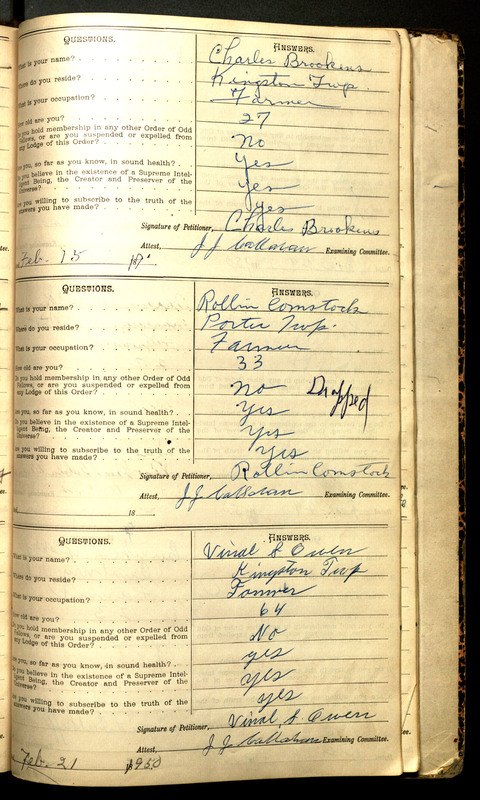 QUESTIONS. ANSWERS.
What is your name? Charles Brookins
Where do you reside? Kingston Twp.
What is your occupation? Farmer
How old are you? 27
Do you hold membership in any other Order of Odd
Fellows, or are you suspended or expelled from
any Lodge of this Order? No
Are you, so far as you know, in sound health? Yes
Do you believe in the existence of a Supreme Intel-
ligent Being, the Creator and Preserver of the
Universe? yes
Are you willing to subscribe to the truth of the
answers you have made? yes
Signature of Petitioner, Charles Brookins
Attest, J J Callahan Examining Committee.
Feb. 15 18
QUESTIONS. ANSWERS.
What is your name? Rollin Comstock
Where do you reside? Porter Twp.
What is your occupation? Farmer
How old are you? 33
Do you hold membership in any other Order of Odd
Fellows, or are you suspended or expelled from
any Lodge of this Order? no Dropped
Are you, so far as you know, in sound health? Yes
Do you believe in the existence of a Supreme Intel-
ligent Being, the Creator and Preserver of the
Universe? Yes
Are you willing to subscribe to the truth of the
answers you have made? Yes
Signature of Petitioner, Rollin Comstock
Attest, J J Callahan Examining Committee.
18
QUESTIONS. ANSWERS.
What is your name? Vinal S. Owen
Where do you reside? Kingston Twp
What is your occupation? Farmer
How old are you? 64
Do you hold membership in any other Order of Odd
Fellows, or are you suspended or expelled from
any Lodge of this Order? No
Are you, so far as you know, in sound health? yes
Do you believe in the existence of a Supreme Intel-
ligent Being, the Creator and Preserver of the
Universe? yes
Are you willing to subscribe to the truth of the
answers you have made? yes
Signature of Petitioner, Vinal S. Owen
Attest, J J Callahan Examining Committee.
Feb. 21 1950